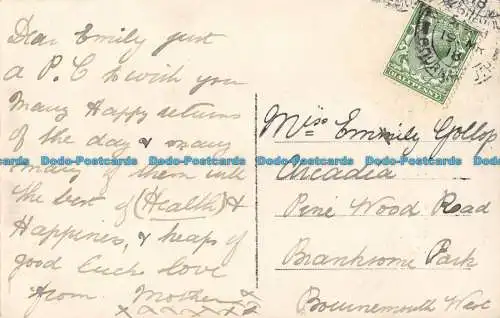 Dear Emily just
a P.C to wish you
Many Happy returns
of the day & many
many of them with
the best of (Health) &
Happiness, & heaps of
good luck love
from Mother x
x x x x x x
Miss Emily Gollop
Arcadia
Pine Wood Road
Branksome Park
Bournemouth West
HALFPENNY
Dodo-Postcards Dodo-Postcards Dodo-Postcards Dodo-Postcards Dodo-Postcards
Dodo-Postcards Dodo-Postcards Dodo-Postcards Dodo-Postcards Dodo-Postcards